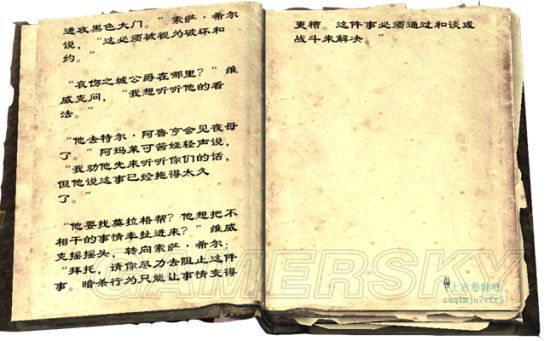 进攻黑色大门。”索萨·希尔
说，“这必须被视为破坏和
约。”
“哀伤之城公爵在哪里？”维
威克问，“我想听听他的看
法。”
“他去特尔·阿鲁亨会见夜母
了。”阿玛莱可茜娅轻声说，
“我劝他先来听听你们的话，
但他说这事已经拖得太久
了。”
“他要找莫拉格帮？他想把不
相干的事情牵扯进来？”维威
克摇摇头，转向索萨·希尔：
“拜托，请你尽力去阻止这件
事。暗杀行为只能让事情变得
更糟。这件事必须通过和谈或
战斗来解决。”
GAMERSKY
上古卷轴吧